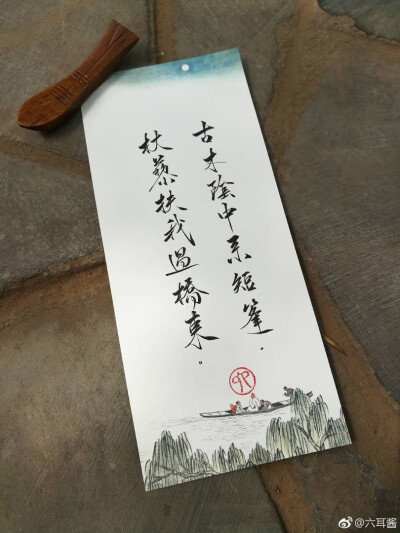 古木陰中系短篷，
杖藜扶我過橋東。
@六耳酱